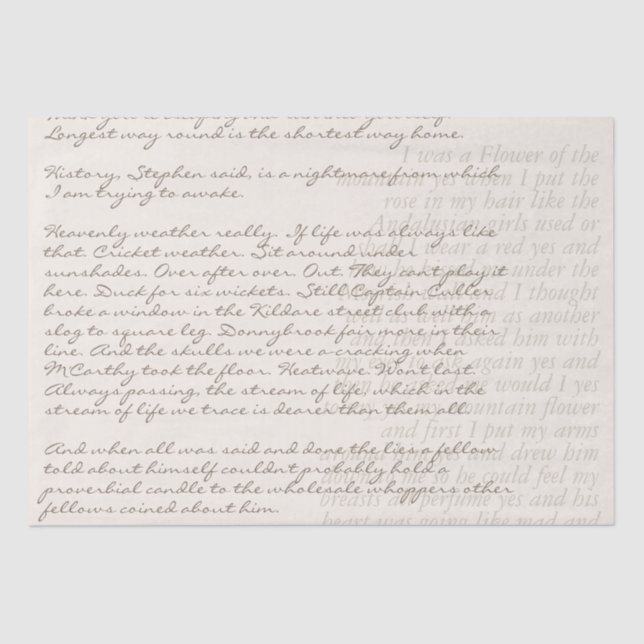 Longest way round is the shortest way home.
History, Stephen said, is a nightmare from which
I am trying to awake.
Heavenly weather really. If life was always like
that. Cricket weather. Sit around under
sunshades. Over after over. Out. They can't play it
here. Duck for six wickets. Still Captain Culler
broke a window in the Kildare street club with a
slog to square leg. Donnybrook fair more in their
line. And the skulls we were a-cracking when
M'Carthy took the floor. Heatwave. Won't last.
Always passing, the stream of life, which in the
stream of life we trace is dearer than them all.
And when all was said and done the lies a fellow
told about himself couldn't probably hold a
proverbial candle to the wholesale whoppers other
fellows coined about him.
I was a Flower of the
mountain yes when I put the
rose in my hair like the
Andalusian girls used or
shall I wear a red yes and
under the
and I thought
well as well him as another
and then I asked him with
my eyes to ask again yes and
then he asked me would I yes
mountain flower
and first I put my arms
around him yes and drew him
down to me so he could feel my
breasts all perfume yes and his
heart was going like mad and